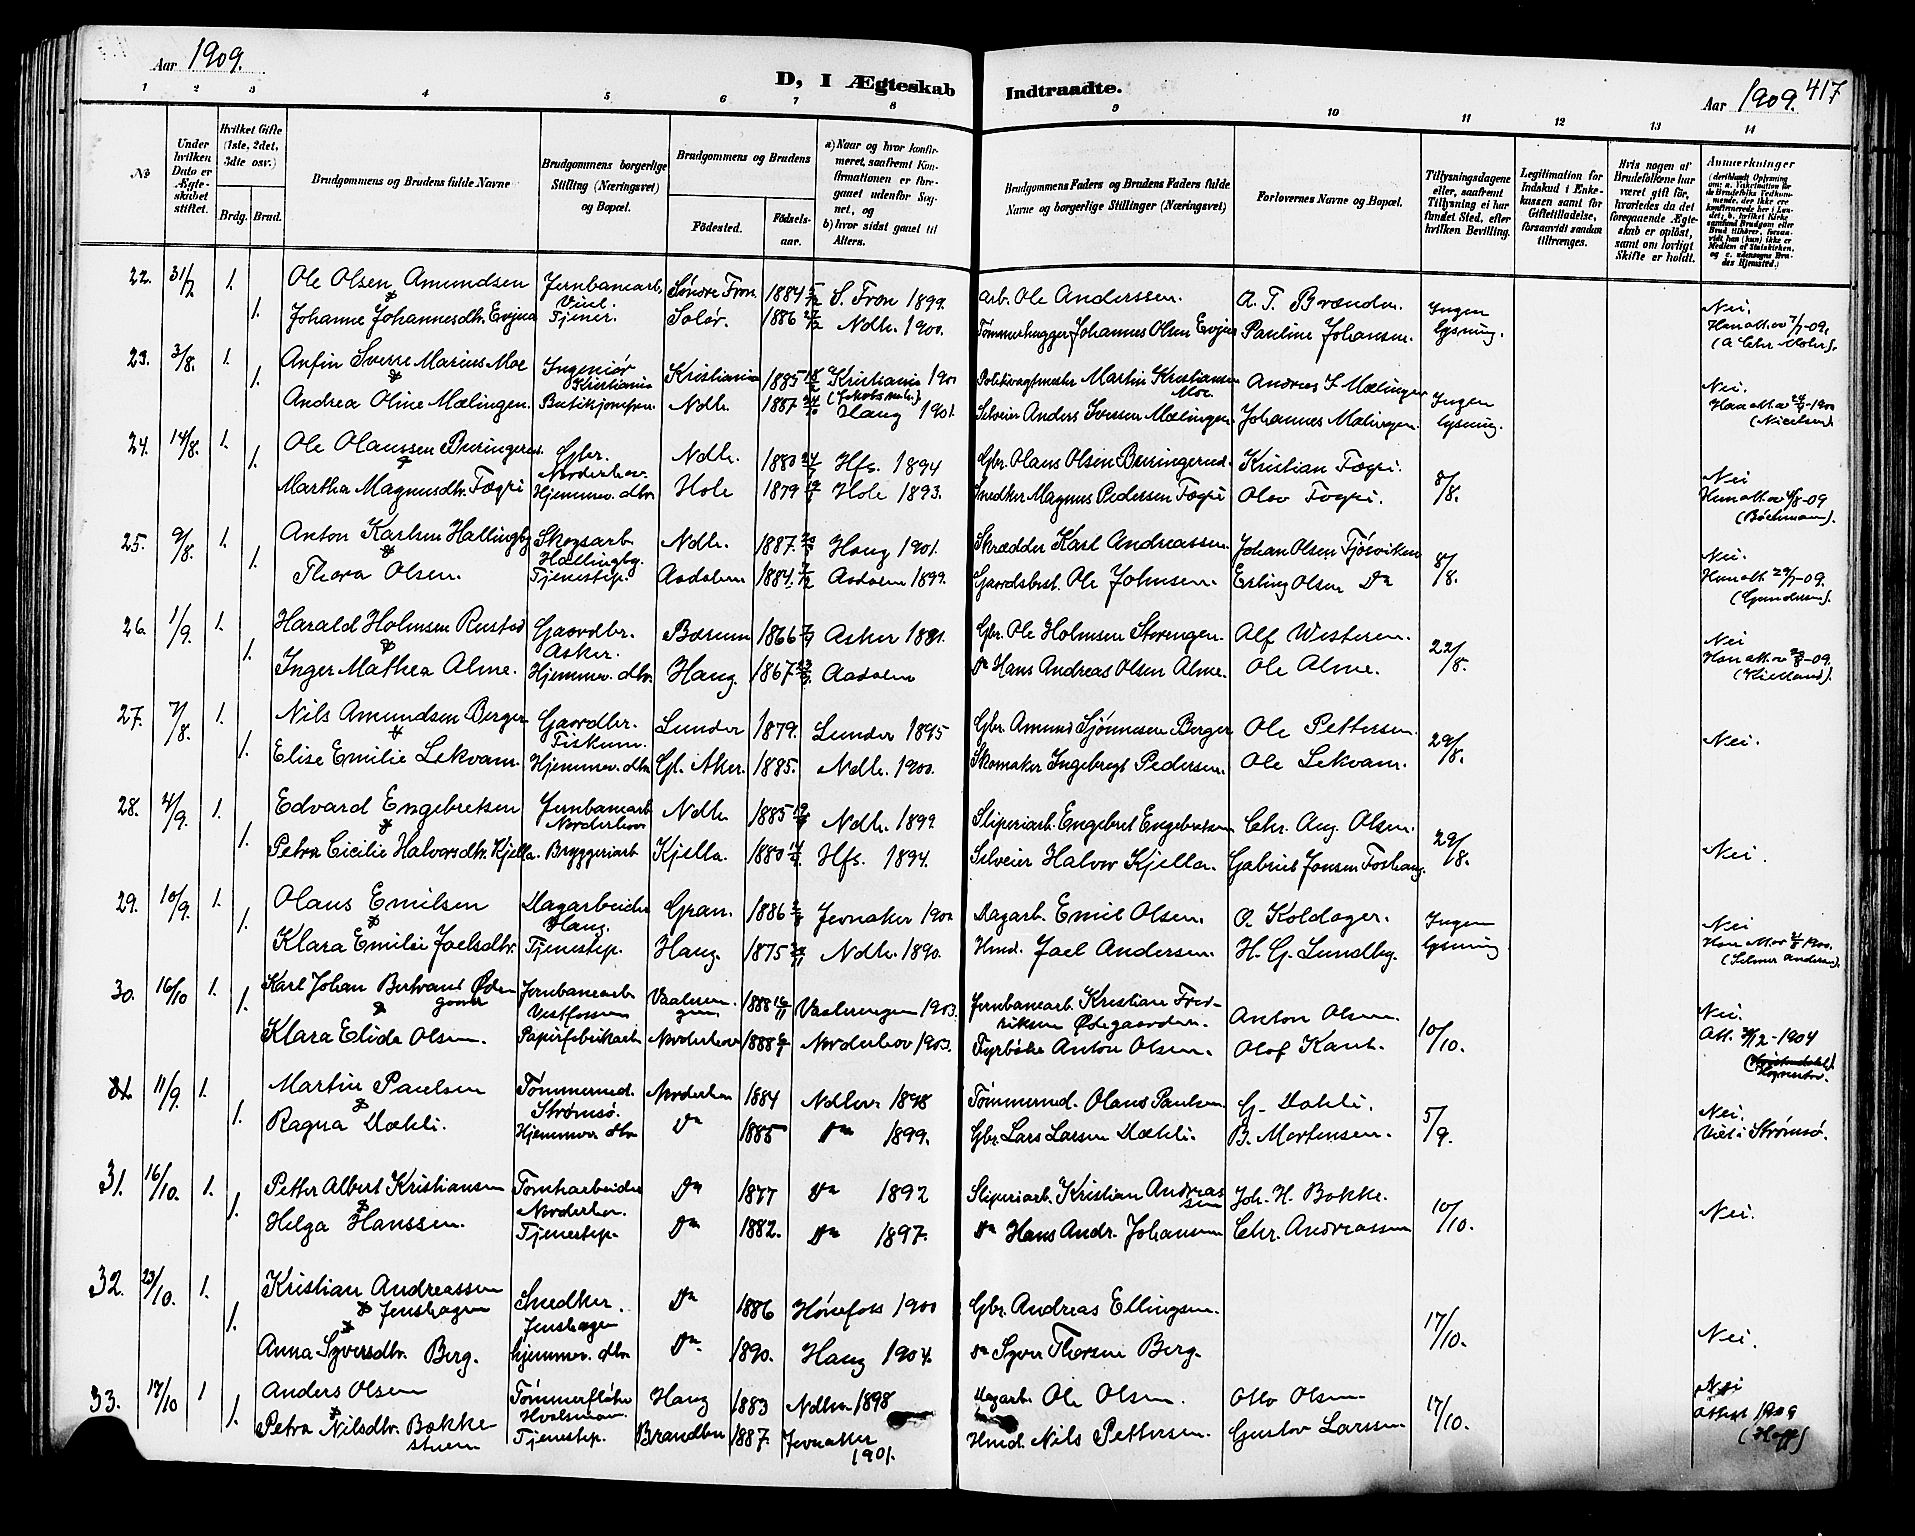 Aar 1909.
D, I Ægteskab Indtraadte.
Aar 1909. 417
1 2 3 4 5 6 7 8 9 10 11 12 13 14
No
Under hvilken Dato er Ægteskabet stiftet.
Hvilket Gifte (1ste, 2det, 3dte osv.)
Brdg. Brud.
Brudgommens og Brudens fulde Navne
Brudgommens borgerlige Stilling (Næringsvei) og Bopæl.
Brudgommens og Brudens
Födested. Födselsaar.
a) Naar og hvor konfirmeret, saafremt Konfirmationen er foregaaet udenfor Sognet, og
b) hvor sidst gaaet til Alters.
Brudgommens Faders og Brudens Faders fulde Navne og borgerlige Stillinger (Næringsvei)
Forlovernes Navne og Bopæl.
Tillysningsdagene eller, saafremt Tillysning ei har fundet Sted, efter hvilken Bevilling.
Legitimation for Indskud i Enkekassen samt for Giftetilladelse, forsaavidt saadan tiltrænges.
Hvis nogen af Brudefolkene har været gift för, hvorledes da det foregaaende Ægteskab er oplöst, samt om lovligt Skifte er holdt.
Anmerkninger
22. 31/7 1. Ole Olsen Amundsen Jernbanearb. Søndre Fron. 1884 S. Fron 1899. arb. Ole Anderssen. A. T. Brænden Ingen Nei.
1. Johanne Johannesdtr. Evjua Tjener. Solør. 1886 Ndh. 1900. Tømmerhugger Johannes Olsen Evjua Pauline Johansen. lysning.
(A Chr Mohr).
23. 3/8. 1. Anfin Sverre Marius Moe Ingeniør Kristiania Kristiania 1885 Kristiania 1900 Politivagtmester Martin Kristiansen Moe. Andreas S. Mælingen Ingen Nei.
1. Andrea Oline Mælingen. Butikjomfru. Ndh. 1887 Haug 1901. Selveier Anders Iversen Mælingen Johannes Mælingen. lysning.
24. 14/8. 1. Ole Olaussen Buringerud. Gbr. Norderhov. Ndh. 1880 Hfs. 1894 Gbr. Olaus Olsen Buringerud. Kristian Fægri. 8/8. Nei
1. Martha Magnusdtr. Fægri Hjemmev. dtr. Hole 1879 Hole 1893. Snedker Magnus Pedersen Fægri Olav Fægri.
25. 9/8. 1. Anton Karlsen Hallingby Skogsarb Hallingby. Ndh. 1887. Haug 1901. Skrædder Karl Andreassen. Johan Olsen Tjøsviken 8/8. Nei.
1. Thora Olsen. Tjenestep. Aadalen 1884. Aadalen 1899. Gaardsbest. Ole Johnsen. Erling Olsen Do
(Gundersen).
26. 1/9. 1. Harald Holmsen Rustad Gaardbr. Asker. Bærum 1866 Asker 1881. Gbr. Ole Holmsen Storengen. Alf Westeren. 22/8. Nei
1. Inger Mathea Alme. Hjemmev. dtr. Haug. 1867 Aadalen Do Hans Andreas Olsen Alme. Ole Alme.
(Kielland).
27. 7/8. 1. Nils Amundsen Berger Gaardbr. Fiskum. Lunder 1879. Lunder 1895 Gbr. Amund Sjønnesen Berger Ole Pettersen. 29/8. Nei.
1. Elise Emilie Lekvam. Hjemmev. dtr. Gl. Aker. 1885. Ndh. 1900. Skomaker Ingebregt Pedersen. Ole Lekvam.
28. 4/9. 1. Edvard Engebretsen Jernbanearb Norderhov Ndh 1885 Ndh. 1899 Sliperiarb. Engebret Engebretsen Chr. Aug. Olsen. 29/8. Nei.
1. Petra Cicilie Halvorsdtr. Kjella. Bryggeriarb Kjella. 1880 Hfs. 1894. Selveier Halvor Kjella. Gabriel Jonsen Foshaug.
29. 10/9. 1. Olaus Emilsen Dagarbeider Haug. Gran. 1886 Jevnaker 1900 Dagarb. Emil Olsen. O. Koldager. Ingen Nei
1. Klara Emilie Joelsdtr. Tjenestep. Haug. 1875 Ndh. 1890. Hmd. Joel Andersen. H. G. Lundby. lysning
(Selmer Andersen).
30. 16/10 1. Karl Johan Bertrand Ødegaard Jernbanearb Vestfossen Vaalerengen 1888 Vaalerengen 1903. Jernbanearb. Kristian Fredriksen Ødegaarden. Anton Olsen. 10/10. Nei.
1. Klara Elida Olsen. Papirfabrikarb Norderhov 1888 Norderhov 1903. Fyrbøter Anton Olsen. Olof Kant. Att. -1904
11/9. 1. Martin Paulsen Tømmermd. Strømsø. Norderhov 1884 Ndhov 1898 Tømmermd. Olaus Paulsen G. Dahli. 5/9. Nei.
1. Ragna Dæhli. Hjemmev dtr Do 1885 Do 1899. Gbr. Lars Larsen Dæhli. B. Mortensen. Viet i Strømsø.
31. 16/10. 1. Petter Albert Kristiansen Tomtearbeider Norderhov. Do 1877 Do 1892 Sliperiarb. Kristian Andreassen Joh. H. Bakke. 10/10. Nei.
1. Helga Hanssen. Tjenestep. Do 1882. Do 1897. Do Hans Andr. Johansen Chr. Andreassen
32. 23/10. 1. Kristian Andreassen Jenshagen Snedker. Jenshagen Do 1886 Hønefoss 1900 Gbr. Andreas Ellingsen. 17/10. Nei.
1. Anna Syversdtr. Berg. hjemmev. dtr. Do 1890. Haug 1904. Do Syver Thorsen Berg.
33. 17/10 1 Anders Olsen Tømmerfløter Hvalsmoen Haug 1883 Ndhov 1898 Dagarb. Ole Olsen. Otto Olsen 17/10. Nei
1. Petra Nilsdtr. Bakkestuen Tjenestep. Brandbu 1887. Jevnaker 1901. Hmd. Nils Pettersen. Gustav Larssen Attest 1909
(Hoff)